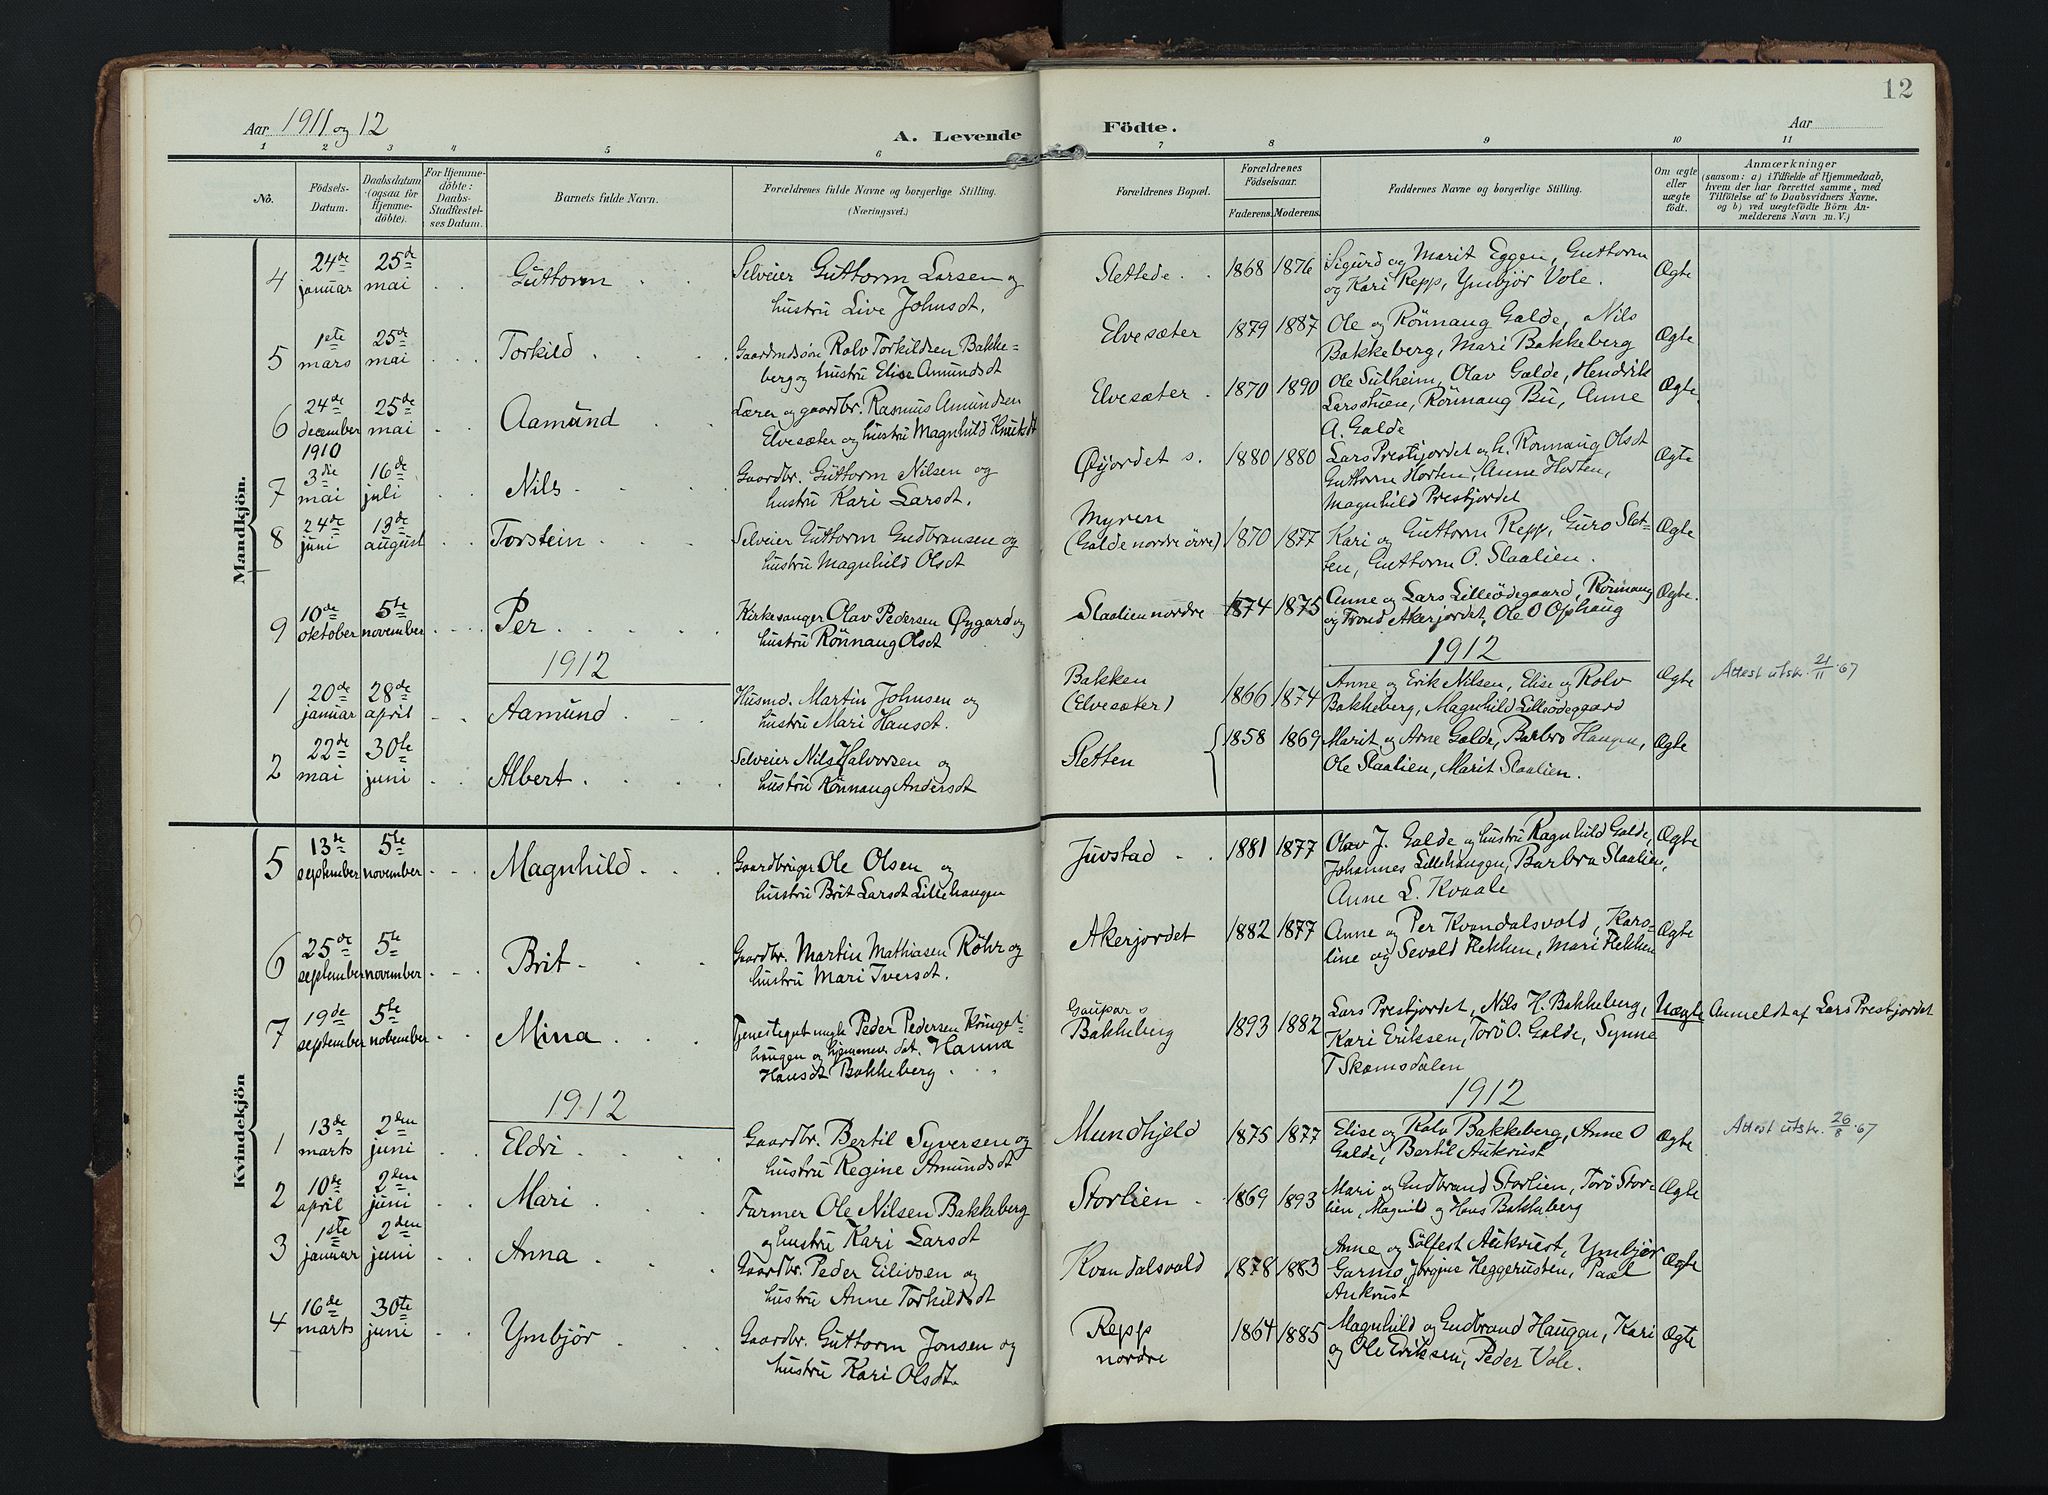 12
Aar 1911 og 12
A. Levende Födte.
Aar
1 2 3 4 5 6 7 8 9 10 11
No.
Födsels-Datum.
Daabsdatum (ogsaa for Hjemmedöbte).
For Hjemmedöbte: Daabs-Stadfæstelses Datum.
Barnets fulde Navn.
Forældrenes fulde Navne og borgerlige Stilling. (Næringsvei.)
Forældrenes Bopæl.
Forældrenes Födselsaar.
Faderens. Moderens.
Faddernes Navne og borgerlige Stilling.
Om ægte eller uægte födt.
Anmærkninger
(saasom: a) i Tilfælde af Hjemmedaab,
hvem der har forrettet samme, med
Tilföielse af to Daabsvidners Navne,
og b) ved uægtefödte Börn Anmelderens Navn m. V.)
Mandkjön.
4 24de januar 25de mai Guttorm Selveier Guttorm Larsen og
hustru Live Johnsdt. Slettede 1868 1876 Sigurd og Marit Eggen, Guttorm
og Kari Repp, Ymbjör Vole. Ægte
5 1ste mars 25de mai Torkild Gaardmdsön Rolv Torkildsen Bakke-
berg og hustru Elise Amundsdt Elvesæter 1879 1887 Ole og Rönnaug Galde, Nils
Bakkeberg, Mari Bakkeberg Ægte
6 24de december 1910 25de mai Aamund Lærer og gaardbr. Rasmus Amundsen
Elvesæter og hustru Magnhild Knutsdt Elvesæter 1870 1890 Ole Sulheim, Olav Galde, Hendrik
Larsstuen, Rönnaug Bu, Anne
A. Galde Ægte
7 3die mai 16de juli Nils Gaardbr. Guttorm Nilsen og
hustru Kari Larsdt. Öyjordet s. 1880 1880 Lars Prestjordet og h. Rönnaug Olsdt
Guttorm Horten, Anne Horten,
Magnhild Prestjordet Ægte
8 24de juni 13de august Torstein Selveier Guttorm Gudbransen og
hustru Magnhild Olsdt Myren
(Galde nordre övre) 1870 1877 Kari og Guttorm Repp, Guro Slet-
ten, Guttorm O. Slaalien. Ægte
9 10de oktober 5te november Per Kirkesanger Olav Pedersen Öygard og
hustru Rönnaug Olsdt Slaalien nordre 1874 1875 Anne og Lars Lilleödegaard, Rönnaug
og Trond Akerjordet, Ole O Ophaug Ægte.
1912 1912
1 20de januar 28de april Aamund Husmd. Martin Johnsen og
hustru Mari Hansdt. Bakken
(Elvesæter) 1866 1874 Anne og Erik Nilsen, Elise og Rolv
Bakkeberg, Magnhild Lilleödegaard Ægte Attest utskr. 21/11-67
2 22de mai 30te juni Albert Selveier Nils Halvorsen og
hustru Rönnaug Andersdt Sletten 1858 1869 Marit og Arne Galde, Barbro Haugen,
Ole Slaalien, Marit Slaalien. Ægte
Kvindekjön
5 13de september 5te november Magnhild Gaardbruger Ole Olsen og
hustru Brit Larsdt Lillehaugen Juvstad 1881 1877 Olav J. Galde og hustru Ragnhild Galde,
Johannes Lillehaugen, Barbra Slaalien,
Anne L. Kvaale Ægte
6 25de september 5te november Brit Gaardbr. Martin Mathiasen Röhr og
hustru Mari Iversdt. Akerjordet 1882 1877 Anne og Per Kvandalsvold, Karo-
line og Sevald Flekken, Mari Flekken Ægte
7 19de september 5te november Mina Tjenestegut ungk. Peder Pedersen Kringel-
haugen og hjemmev. dat. Hanna
Hansdt Bakkeberg Gaupar s
Bakkeberg 1893 1882 Lars Prestjordet, Nils H. Bakkeberg,
Kari Eriksen, Torö O. Galde, Synne
T Skamsdalen Uægte Anmeldt af Lars Prestjordet
1912 1912
1 13de marts 2den juni Eldri Gaardbr. Bertil Syversen og
hustru Regine Amundsdt Mundhjeld 1875 1877 Elise og Rolv Bakkeberg, Anne O
Galde, Bertil Aukrust Ægte Attest utskr. 26/8-67
2 10de april 2den juni Mari Farmer Ole Nilsen Bakkeberg
og hustru Kari Larsdt Storlien 1869 1893 Mari og Gudbrand Storlien, Torö Stor-
lien, Magnild og Hans Bakkeberg Ægte
3 1ste januar 2den juni Anna Gaardbr. Peder Eilivsen og
hustru Anne Torkildsdt Kvandalsvold 1878 1883 Anne og Sölfest Aukrust, Ymbjör
Garmo, Jörgine Heggerusten, Paal
Aukrust Ægte
4 16de marts 30te juni Ymbjör Gaardbr. Guttorm Jonsen og
hustru Kari Olsdt. Repp
nordre 1864 1885 Magnhild og Gudbrand Haugen, Kari
og Ole Eriksen, Peder Vole. Ægte